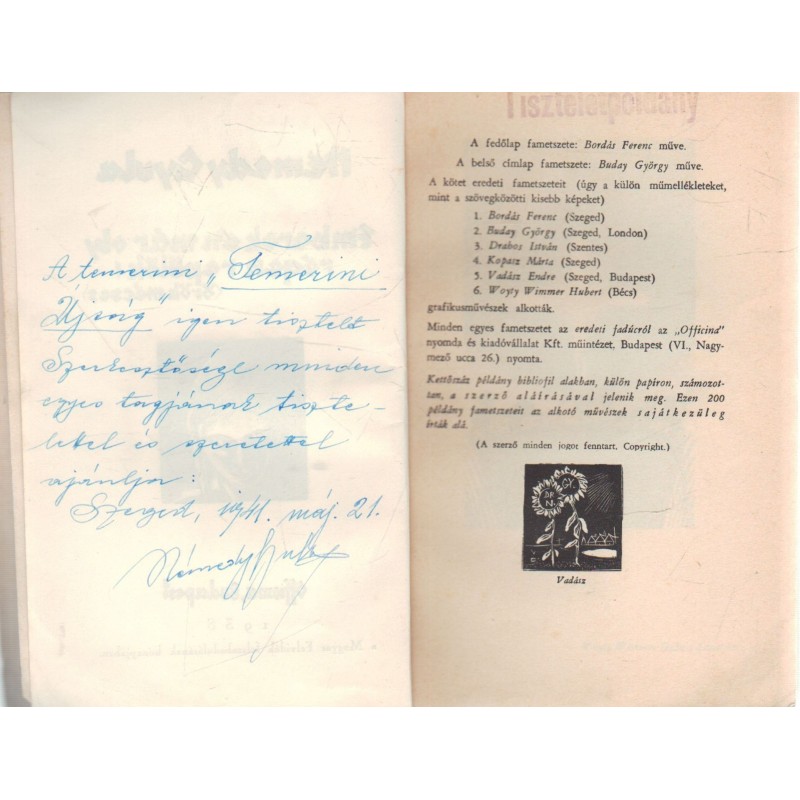 A temerini „Temerini
Újság" igen tisztelt
Szerkesztősége minden
egyes tagjának tiszte-
lettel és szeretettel
ajánlja:
Szeged, 1941. máj. 21.
Némedy Gyula
Tiszteletpéldány
A fedőlap fametszete: Bordás Ferenc műve.
A belső címlap fametszete: Buday György műve.
A kötet eredeti fametszeteit (úgy a külön műmellékleteket,
mint a szövegközötti kisebb képeket)
1. Bordás Ferenc (Szeged)
2. Buday György (Szeged, London)
3. Drahos István (Szentes)
4. Kopasz Márta (Szeged)
5. Vadász Endre (Szeged, Budapest)
6. Woyty Wimmer Hubert (Bécs)
grafikusművészek alkották.
Minden egyes fametszetet az eredeti fadúcról az „Officina"
nyomda és kiadóvállalat Kft. műintézet, Budapest (VI., Nagy-
mező ucca 26.) nyomta.
Kettőszáz példány bibliofil alakban, külön papíron, számozot-
tan, a szerző aláírásával jelenik meg. Ezen 200
példány fametszeteit az alkotó művészek sajátkezüleg
írták alá.
(A szerző minden jogot fenntart. Copyright.)
Vadász